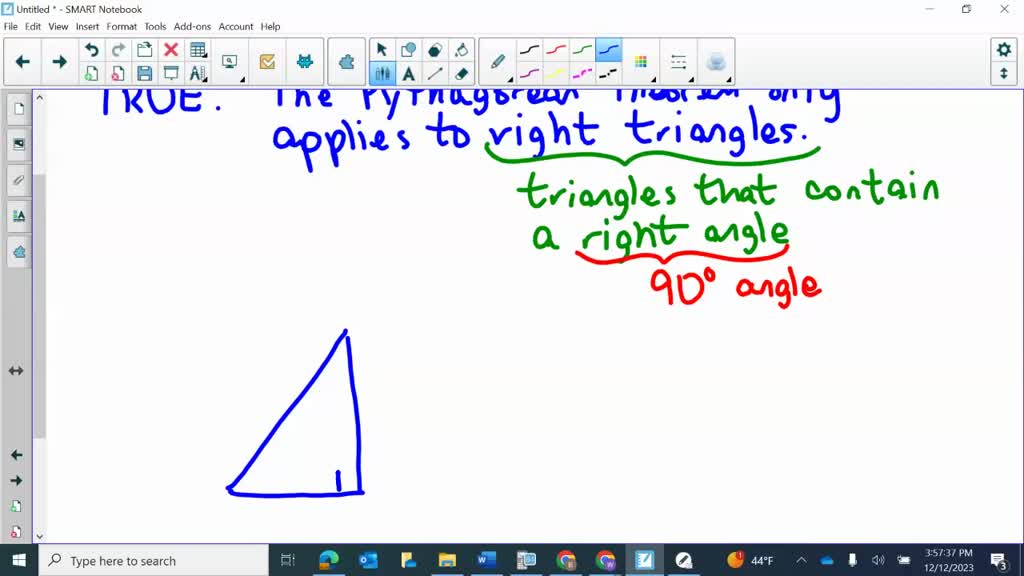 Untitled * - SMART Notebook
File Edit View Insert Format Tools Add-ons Account Help
TRUE. The Pythagorean Theorem only
applies to right triangles.
triangles that contain
a right angle
90° angle
Type here to search
44°F
3:57:37 PM
12/12/2023
3